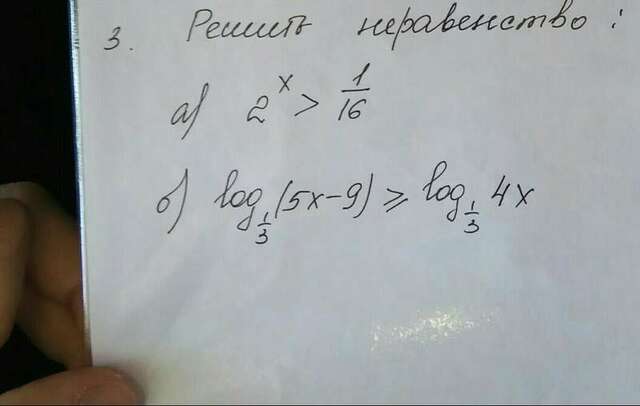 3. Решить неравенство:
а) 2^x > 1/16
б) log_{1/3}(5x-9) ≥ log_{1/3} 4x